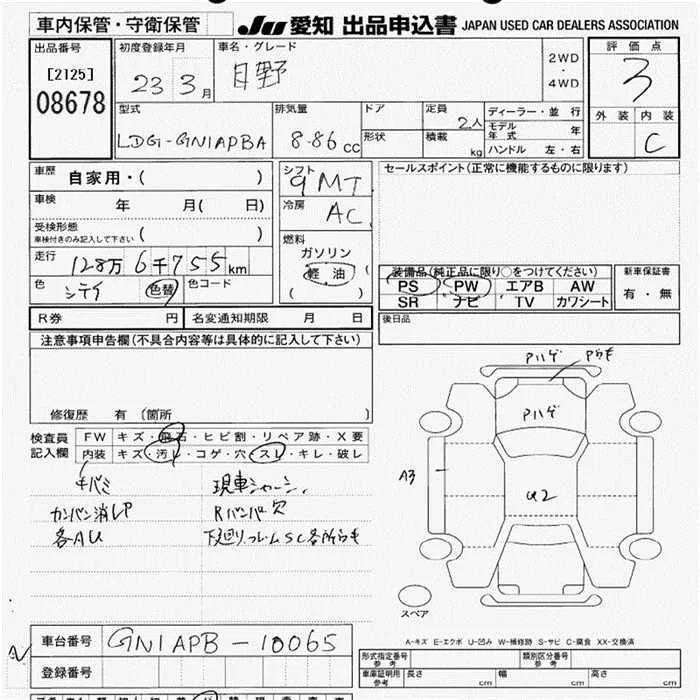 車内保管・守衛保管 JU 愛知 出品申込書 JAPAN USED CAR DEALERS ASSOCIATION
出品番号
[2125]
08678
初度登録年月
23 3 月
車名・グレード
日野
2WD
・
4WD
評価点
3
外装 内装
C
型式
LDG-GN1APBA
排気量
8-86 cc
ドア
形状
定員
2人
積載
kg
ディーラー・並行
モデル年式 年
ハンドル 左・右
車歴 自家用・( )
車検 年 月( 日)
受検形態
車検付きのみ記入して下さい ( )
走行 128万6千755km
色 シロイ 色替 色コード
シフト
9MT
冷房
AC
燃料
ガソリン
軽油
( )
セールスポイント(正常に機能するものに限ります)
装備品(純正品に限り○をつけてください)
PS PW エアB AW
SR ナビ TV カワシート
新車保証書
有・無
R券 円 名変通知期限 月 日
後日品
注意事項申告欄(不具合内容等は具体的に記入して下さい)
修復歴 有 (箇所 )
検査員記入欄
FW キズ・飛石・ヒビ割・リペア跡・X要
内装 キズ・汚レ・コゲ・穴・スレ・キレ・破レ
キバミ 現車シャーシ
カンバン消しP Rバンパ欠
各AU 下廻り、フレームSC各所
Pハゲ
Pハゲ
A3
U2
スペア
A-キズ E-エクボ U-凹み W-補修跡 S-サビ C-腐食 XX-交換済
車台番号 GN1APB-10065
登録番号
形式指定番号 参考
類別区分番号 参考
車庫証明用 参考 長さ cm 幅 cm 高さ cm